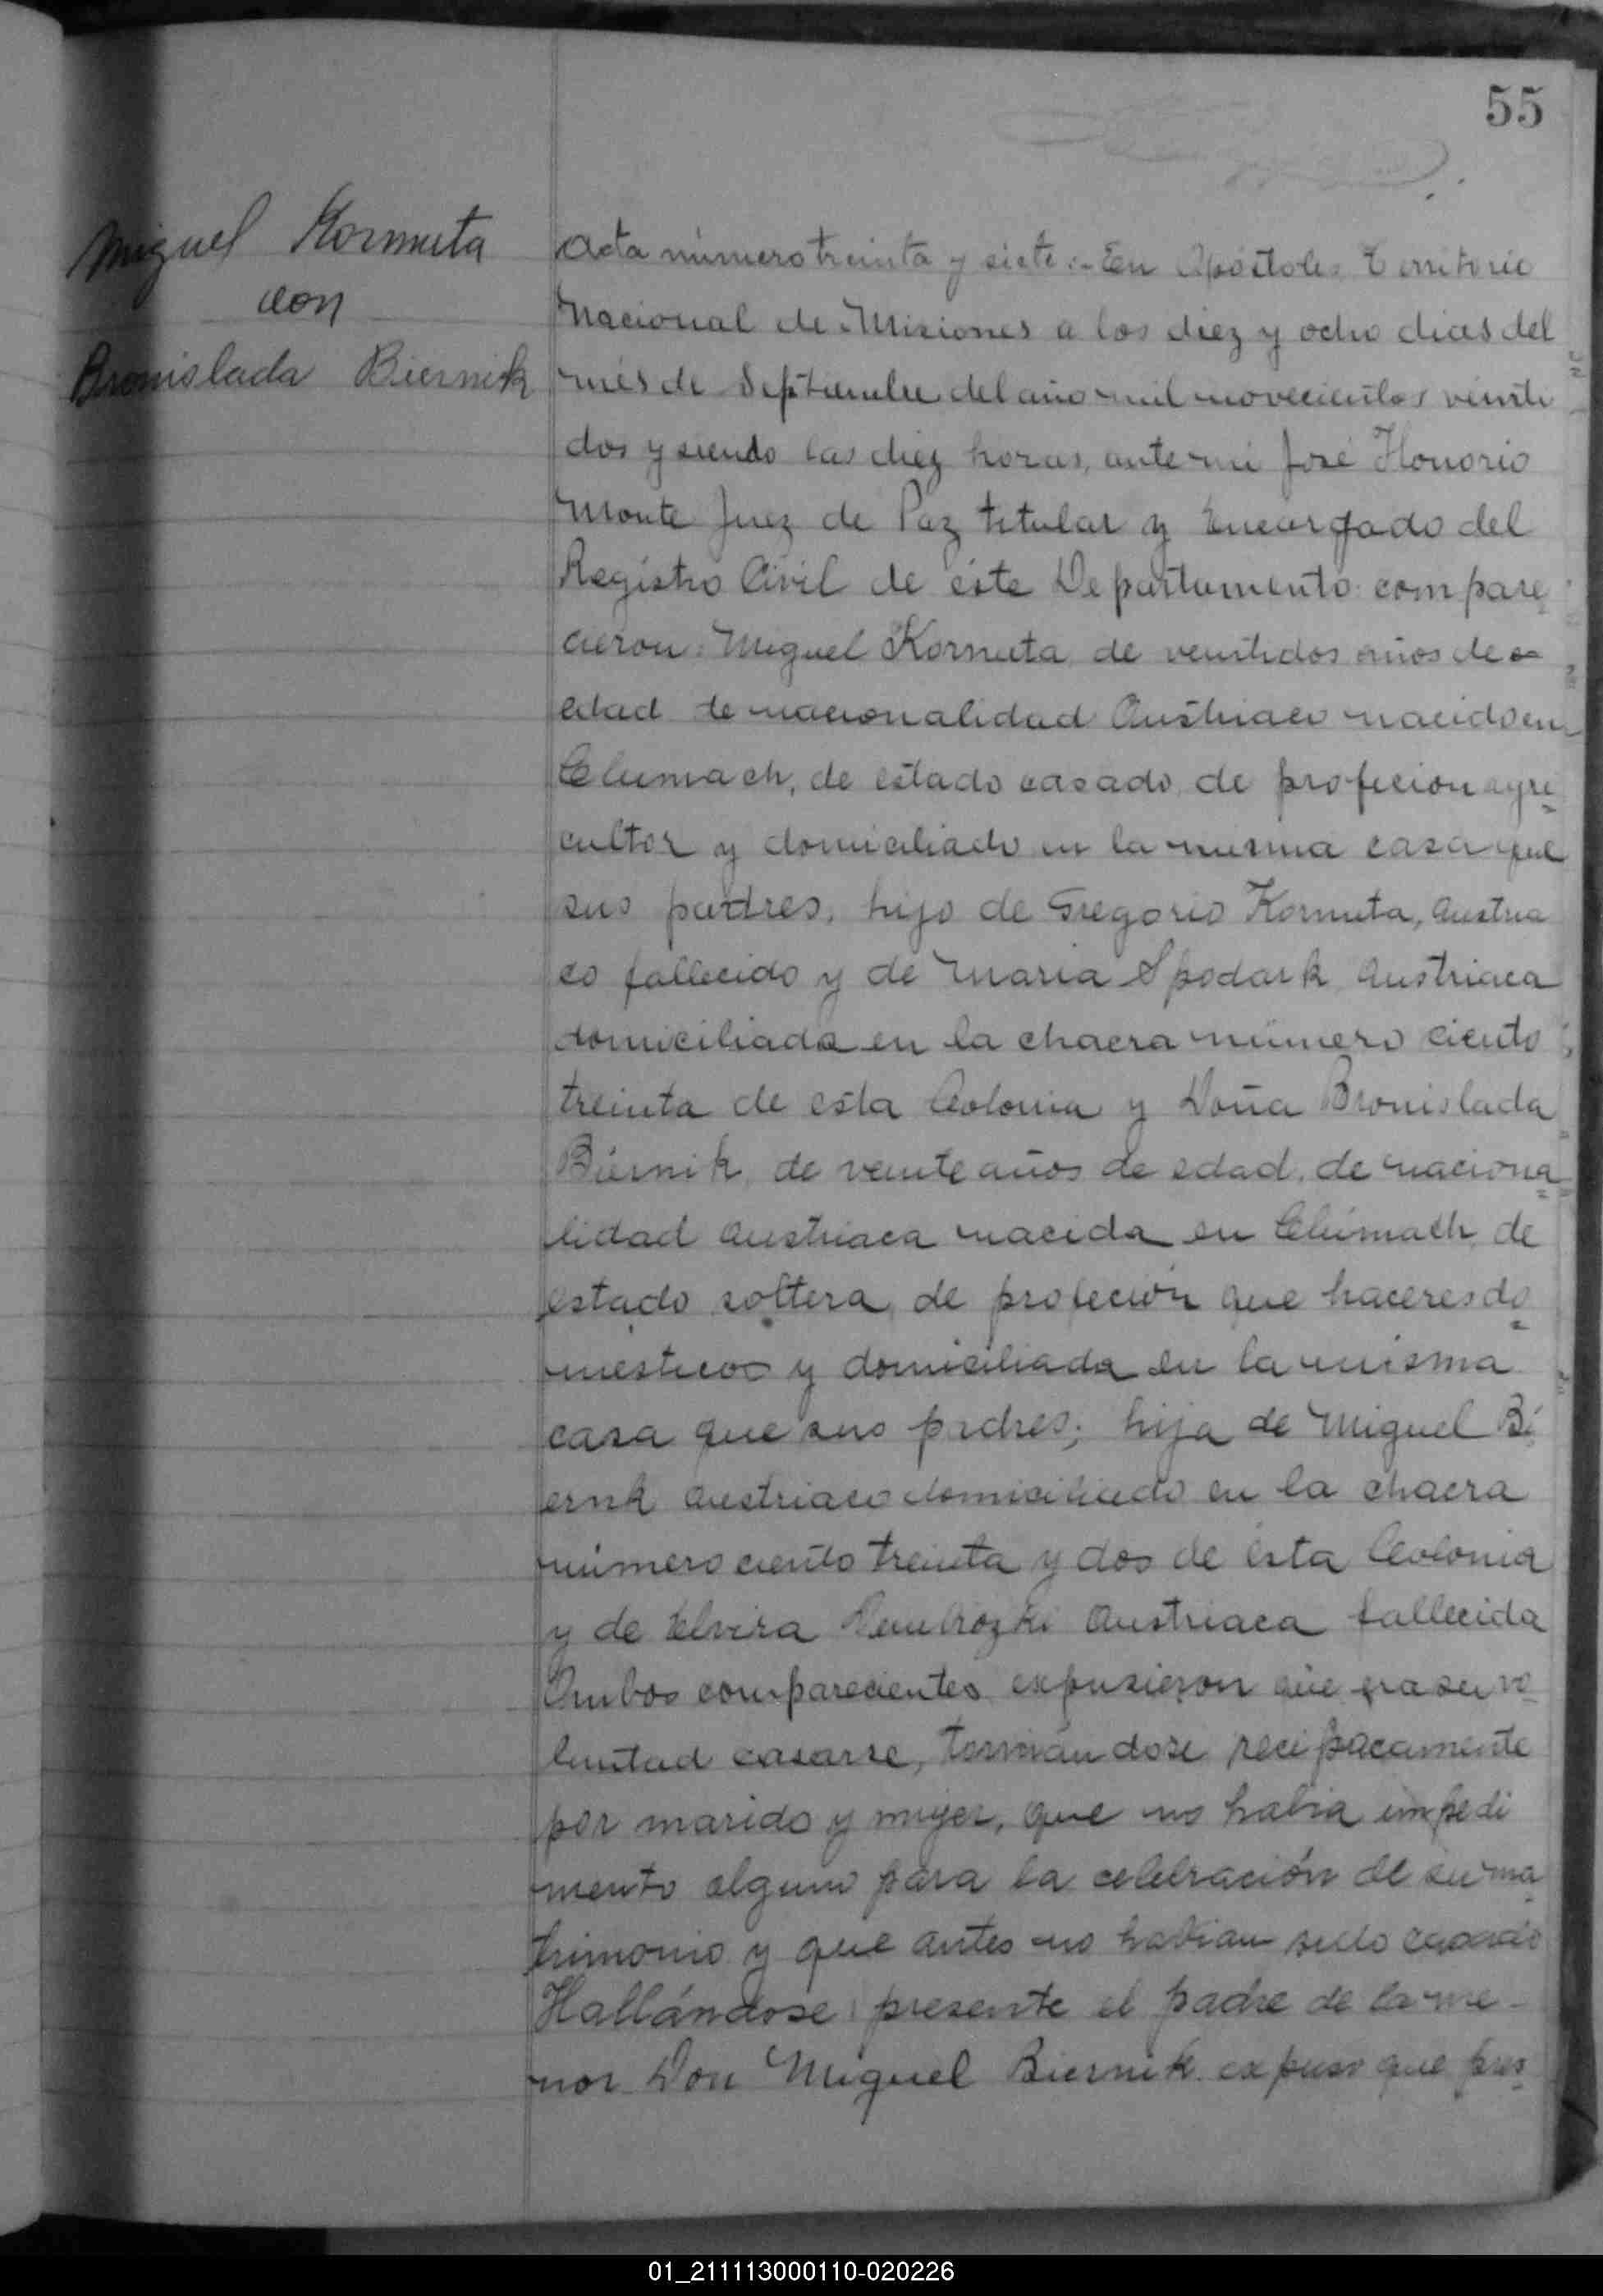 55
Miguel Kormuta
con
Bronislada Biernik
Acta número treinta y siete:- En Apóstoles Territorio
Nacional de Misiones a los diez y ocho dias del
més de Septiembre del año mil novecientos veinti
dos y siendo las diez horas, ante mi José Honorio
Monte Juez de Paz titular y Encargado del
Registro Civil de éste Departamento compare
cieron: Miguel Kormuta de veintidos años de
edad de nacionalidad Austriaco nacido en
Clumach, de estado casado de profecion agri
cultor y domiciliado en la misma casa que
sus padres, hijo de Gregorio Kormuta, Austria
co fallecido y de Maria Spodark Austriaca
domiciliada en la chacra número ciento
treinta de esta Colonia y Doña Bronislada
Biernik, de veinte años de edad, de naciona
lidad Austriaca nacida en Clumach, de
estado soltera, de profeción que haceres do
mesticos y domiciliada en la misma
casa que sus padres; hija de Miguel Bi
ernk Austriaco domiciliado en la chacra
número ciento treinta y dos de ésta Colonia
y de Elvira Austriaca fallecida
Ambos comparecientes expusieron que era su vo
luntad casarse, tomándose recipacamente
por marido y mujer, que no habia impedi
mento alguno para la celebración de su ma
trimonio y que antes no habian sido casado
Hallándose presente el padre de la me-
nor Don Miguel Biernik expuso que pres
01_211113000110-020226